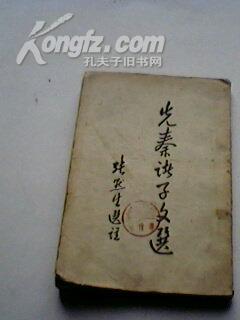 Kongfz.com
孔夫子旧书网
先秦诸子文選
张默生選註